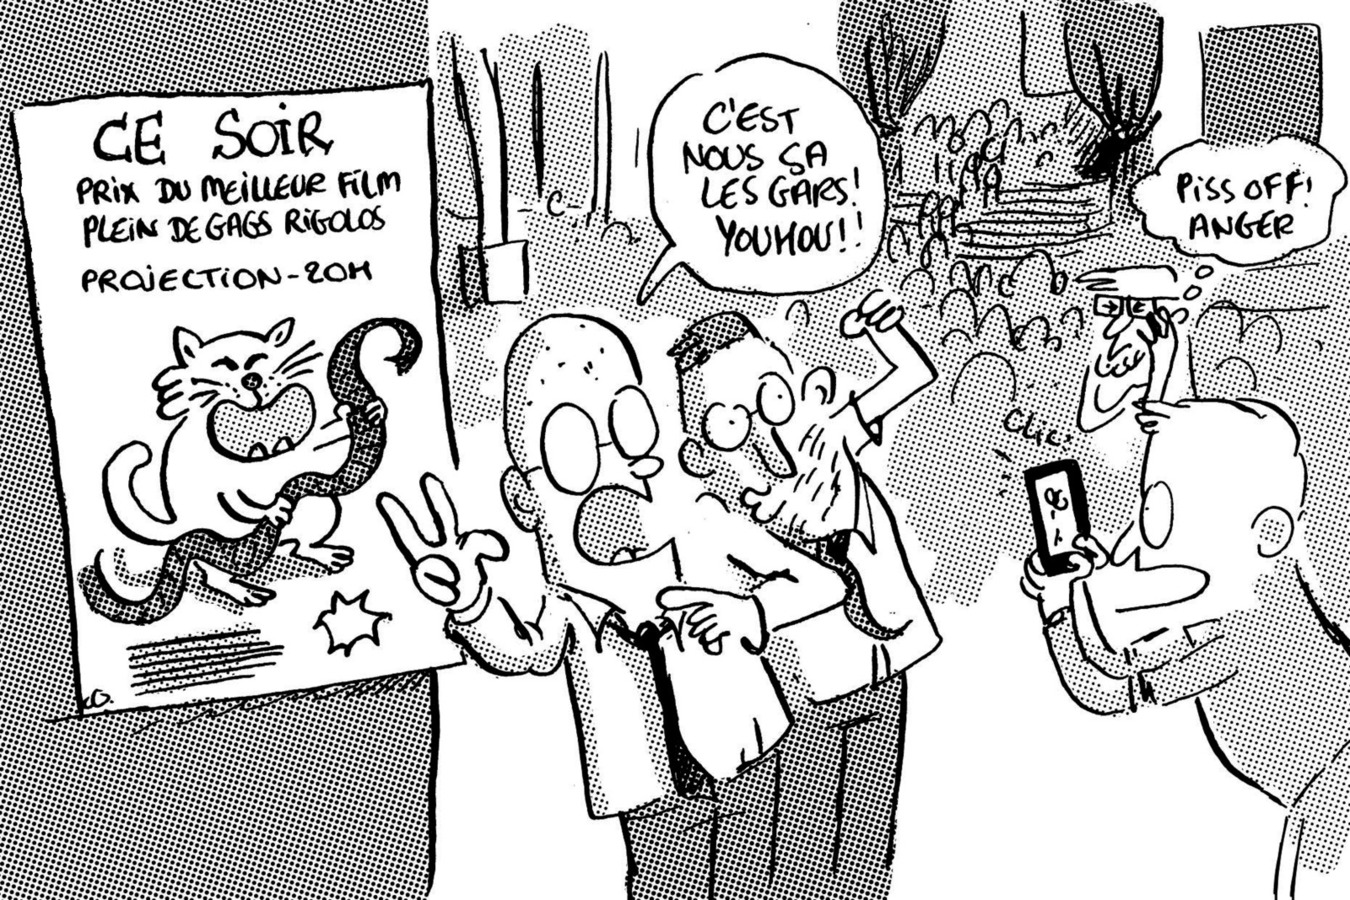 CE SOIR
PRIX DU MEILLEUR FILM
PLEIN DE GAGS RIGOLOS
PROJECTION-20H
C'EST
NOUS ÇA
LES GARS!
YOUHOU!!
PISS OFF!
ANGER
CLIC!